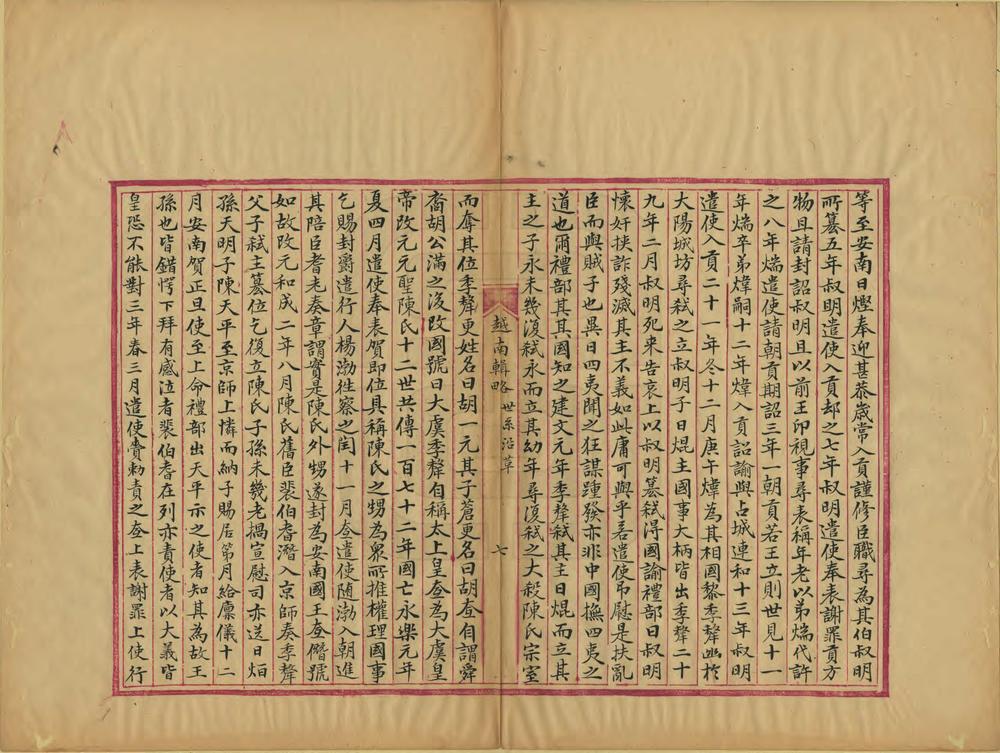 等至安南日熞奉迎甚恭歲常入貢謹修臣職尋為其伯叔明
所簒五年叔明遣使入貢却之七年叔明遣使奉表謝罪貢方
物且請封詔叔明且以前王印視事尋表稱年老以弟煓代許
之八年煓遣使請朝貢期詔三年一朝貢若王立則世見十一
年煓卒弟煒嗣十二年煒入貢詔諭與占城連和十三年叔明
遣使入貢二十一年冬十二月庚午煒為其相國黎季犛幽於
大陽城坊尋弒之立叔明子日焜主國事大柄皆出季犛二十
九年二月叔明死来告哀上以叔明簒弒得國諭禮部曰叔明
懷奸挟詐殘滅其主不義如此庸可與乎若遣使弔慰是扶亂
臣而與賊子也異日四夷聞之狂謀踵發亦非中國撫四夷之
道也爾禮部其其國知之建文元年季犛弒其主日焜而立其
主之子永未幾復弒永而立其幼年尋復弒之大殺陳氏宗室
越南輯略 世系沿革 七
而奪其位季犛更姓名曰胡一元其子蒼更名曰胡𡗨自謂舜
裔胡公滿之後改國號曰大虞季犛自稱太上皇𡗨為大虞皇
帝改元元聖陳氏十二世共傳一百七十二年國亡永樂元年
夏四月遣使奉表賀即位具稱陳氏之甥為衆所推權理國事
乞賜封爵遣行人楊渤徃察之閏十一月𡗨遣使随渤入朝進
其陪臣耆老奏章謂實是陳氏外甥遂封為安南國王𡗨僭號
如故改元和成二年八月陳氏舊臣裴伯耆潛入京師奏季犛
父子弒主簒位乞復立陳氏子孫未幾老撾宣慰司亦送日烜
孫天明子陳天平至京師上憐而納予賜居第月給廪儀十二
月安南賀正旦使至上命禮部出天平示之使者知其為故王
孫也皆錯愕下拜有感泣者裴伯耆在列亦責使者以大義皆
皇恐不能對三年春三月遣使賫勅責之𡗨上表謝罪上使行